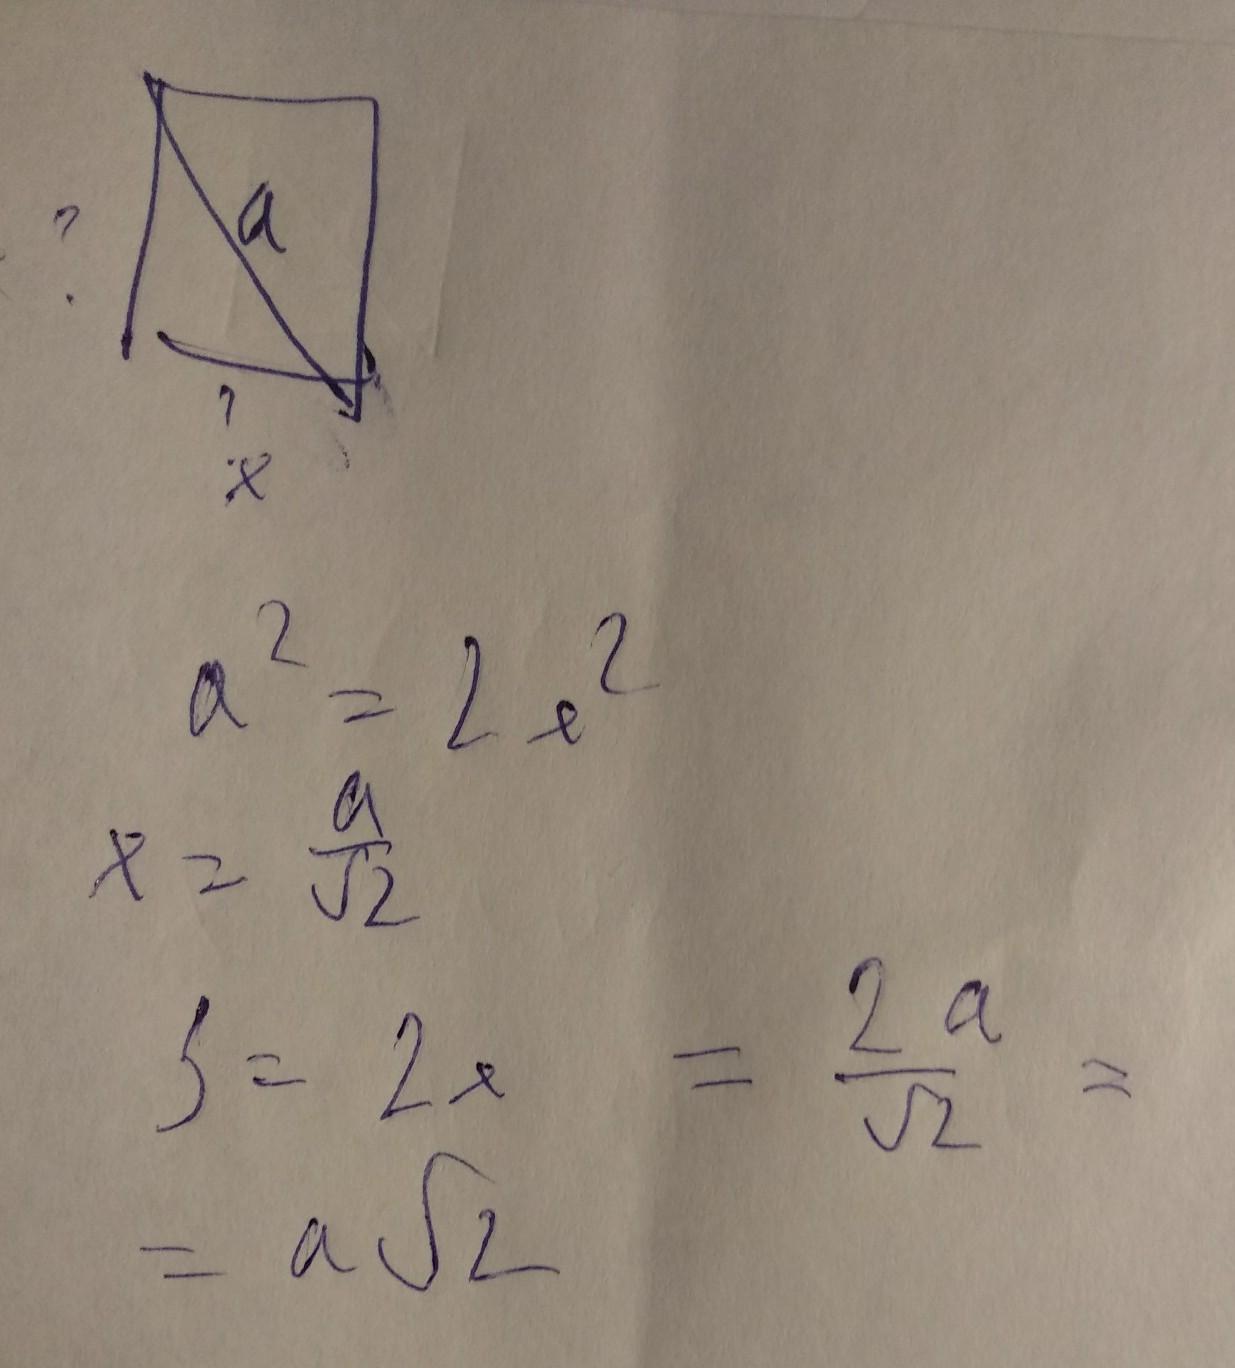 a
?
?
x
a² = 2x²
x = a/√2
S = 2x = 2a/√2 =
= a√2